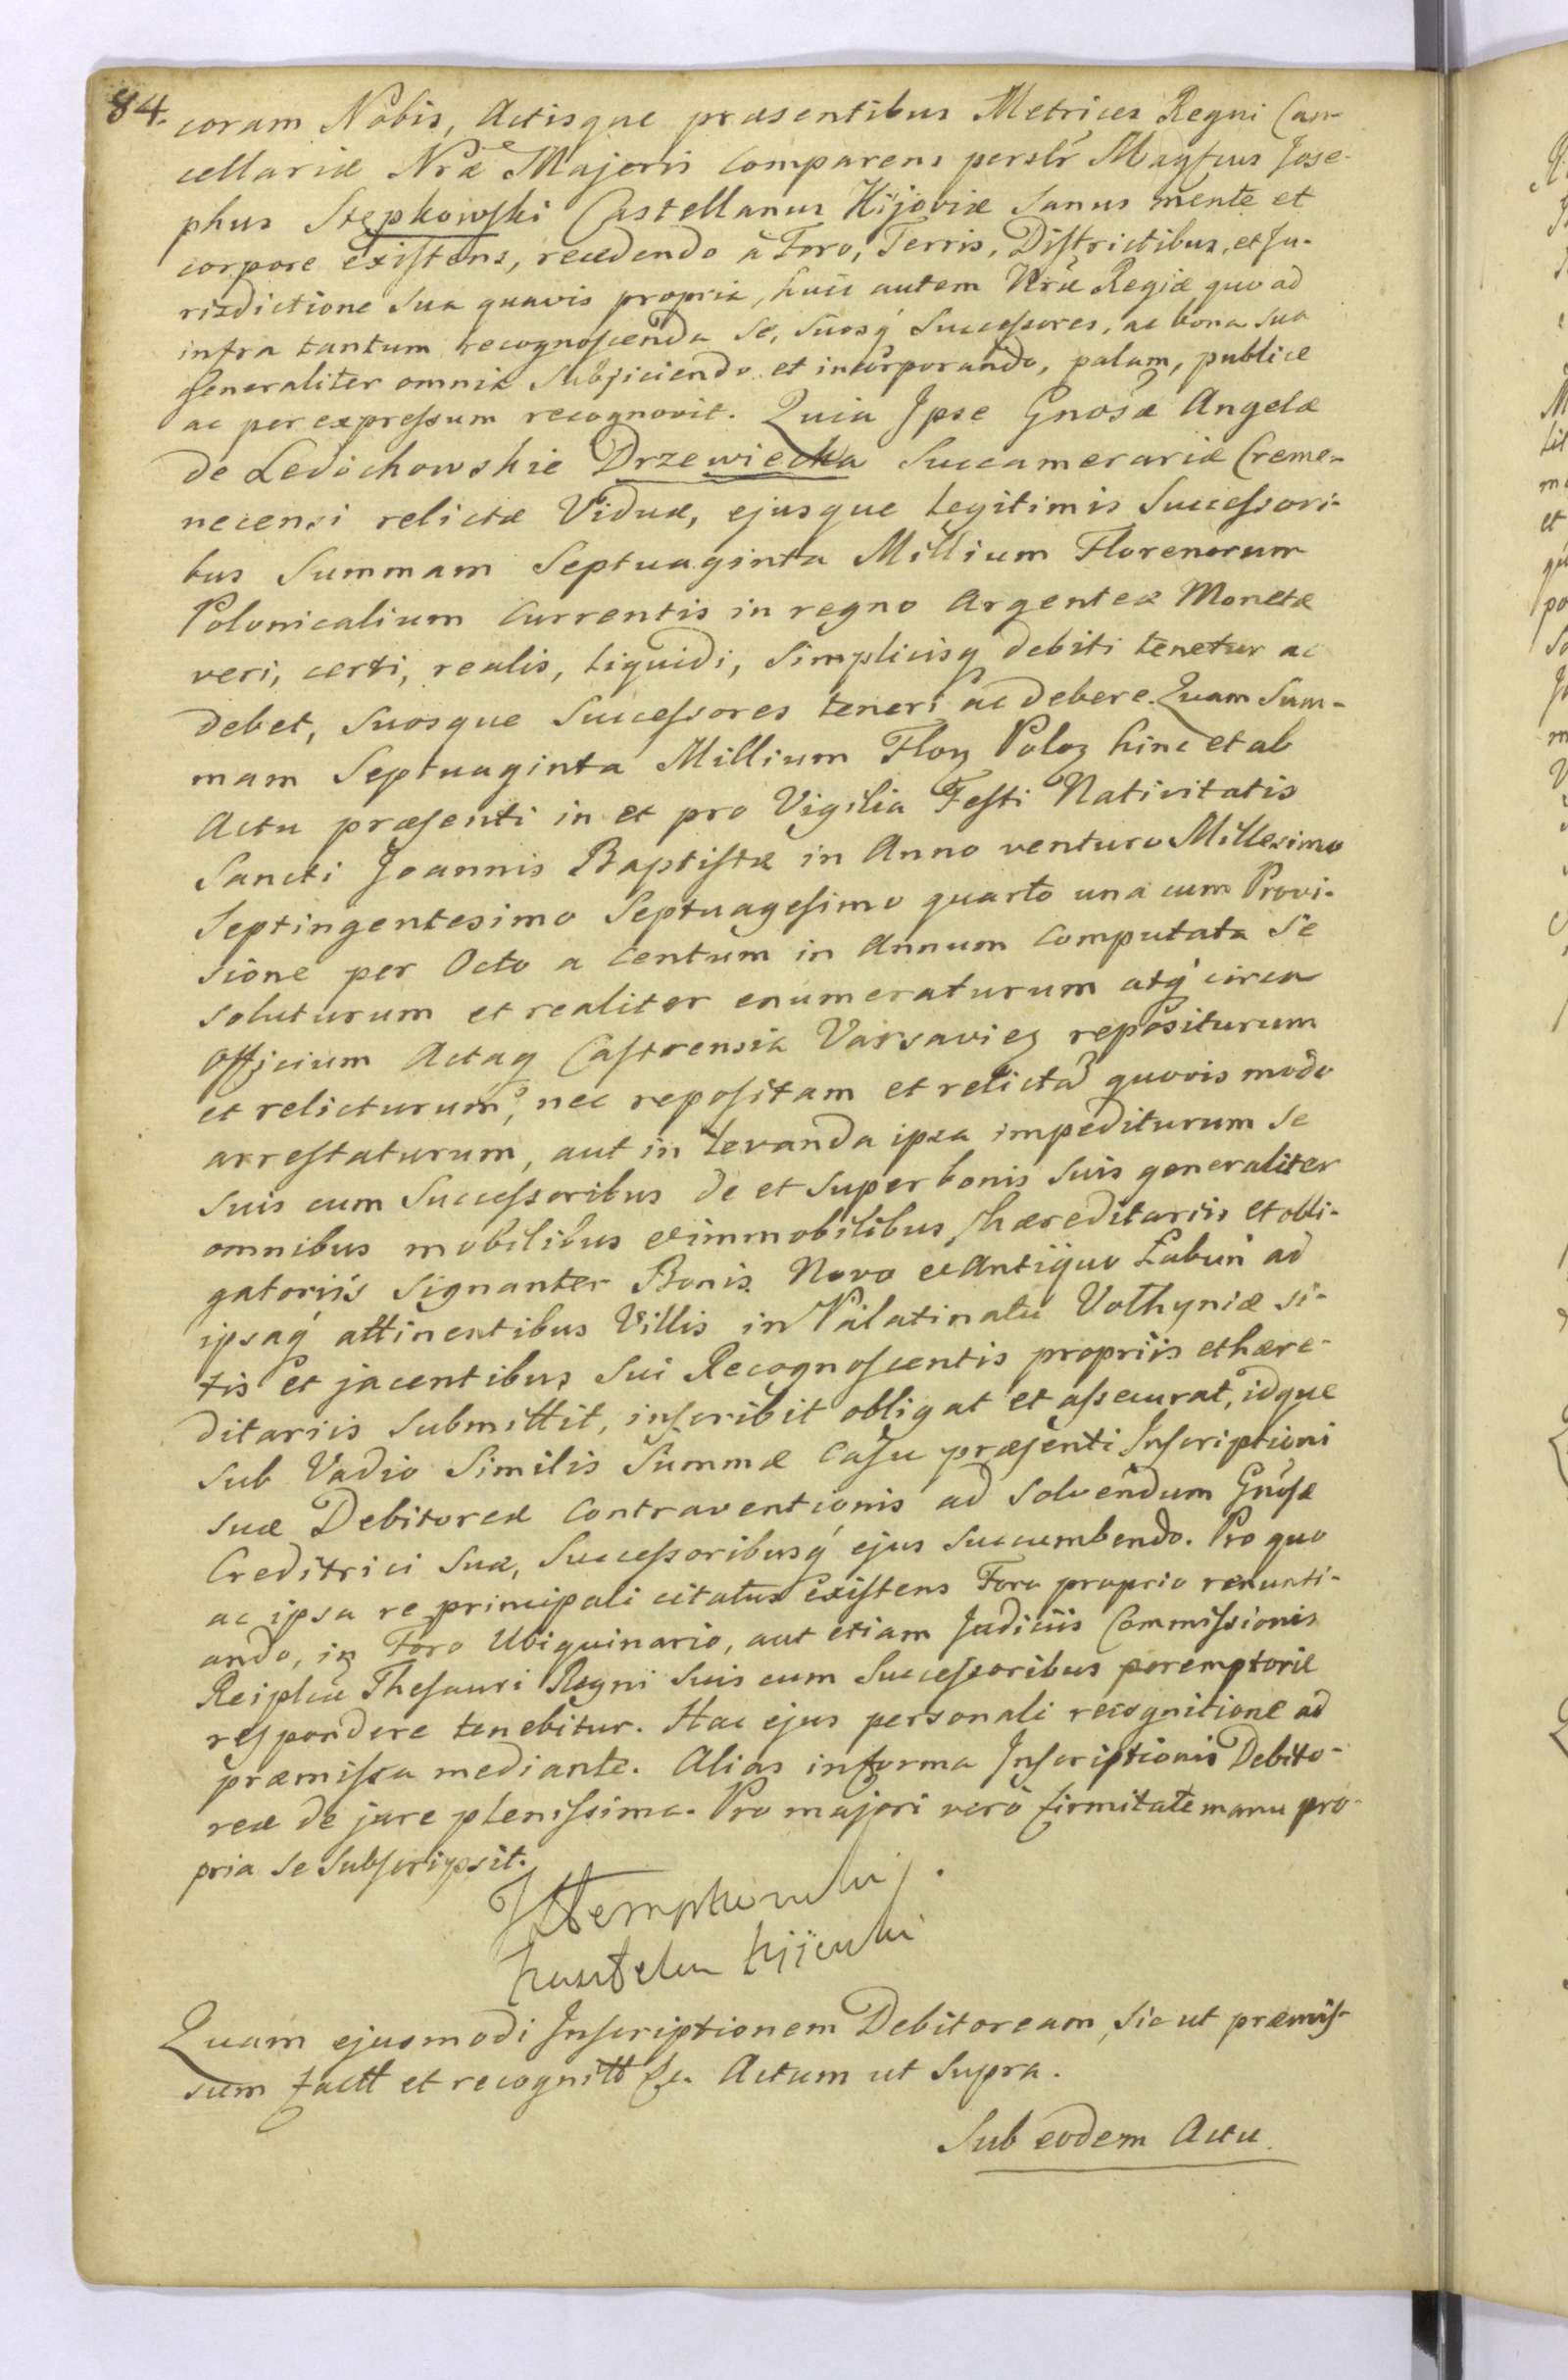 84.
coram Nobis, Actisque præsentibus Metrices Regni Can-
cellariæ Nræ Majoris Comparens perslr Magfcus Jose-
phus Stępkowſki Castellanus Kijoviæ Sanus mente et
corpore exiſtens, recedendo à Foro, Terris, Diſtrictibus, et Ju-
risdictione Sua quavis propria, huic autem Nræ Regiæ quo ad
infra tantum recognoſcenda Se, Suosq́ Succeſsores, ac bona Sua
generaliter omnia Subjiciendo et incorporando, palam, publice
ac per expreſsum recognovit. Quia Ipse Gnosæ Angelæ
de Ledochowskie Drzewiecka Succamerariæ Creme-
necensi relictæ Viduæ, ejusque Legitimis Succeſsori-
bus Summam Septuaginta Millium Florenorum
Polonicalium Currentis in regno Argenteæ Monetæ
veri, certi, realis, liquidi, Simplicisq debiti tenetur ac
debet, Suosque Succeſsores teneri ac debere. Quam Sum-
mam Septuaginta Millium Floꝝ Poloꝝ hinc et ab
Actu præſenti in et pro Vigilia Feſti Nativitatis
Sancti Joannis Baptiſtæ in Anno venturo Millesimo
Septingentesimo Septuageſimo quarto una cum Provi-
sione per Octo a Centum in Annum Computata Se
soluturum et realiter enumeraturum atq́ circa
Officium Actaq Caſtrensia Varsavieꝝ repositurum
et relicturum, nec repoſitam et relictã quovis modo
arreſtaturum, aut in Levanda ipsa impediturum Se
Suis cum Succeſsoribus de et Super bonis Suis generaliter
omnibus mobilibus et immobilibus, hæreditariis et obli-
gatoriis Signanter Bonis Novo et Antiquo Łabuń ad
ipsaq́ attinentibus Villis in Palatinatu Volhyniæ Si-
tis et jacentibus Sui Recognoſcentis propriis et hære-
ditariis Submittit, inſcribit obligat et aſsecurat, idque
Sub Vadio Similis Summæ Caſu præſenti Inſcriptioni
suæ Debitoreæ Contraventionis ad Solvendum Gnoſæ
Creditrici Suæ, Succeſsoribusq́ ejus Succumbendo. Pro quo
ac ipsa re principali citatus exiſtens Foro proprio renunti-
ando, in Foro Ubiquinario, aut etiam Judiciis Commiſsionis
Reiplcæ Theſauri Regni Suis cum Succeſsoribus peremptorie
reſpondere tenebitur. Hac ejus personali recognitione ad
præmiſsa mediante. Alias in forma Inſcriptionis Debito-
reæ de jure pleniſsima. Pro majori verò firmitate manu pro-
pria Se Subſcripsit.
JStempkowski
kasztelan kijowski
Quam ejusmodi Inſcriptionem Debitoream, Sic ut præmiſ-
sum factt et recognitt &c. Actum ut Supra.
Sub eodem Actu